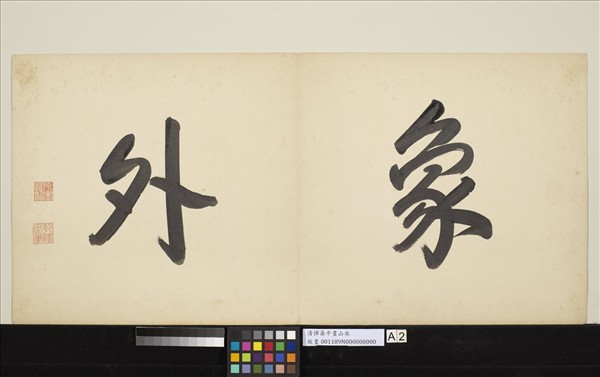 象外
清惲壽平畫山水
故畫 001189N000000000
A 2